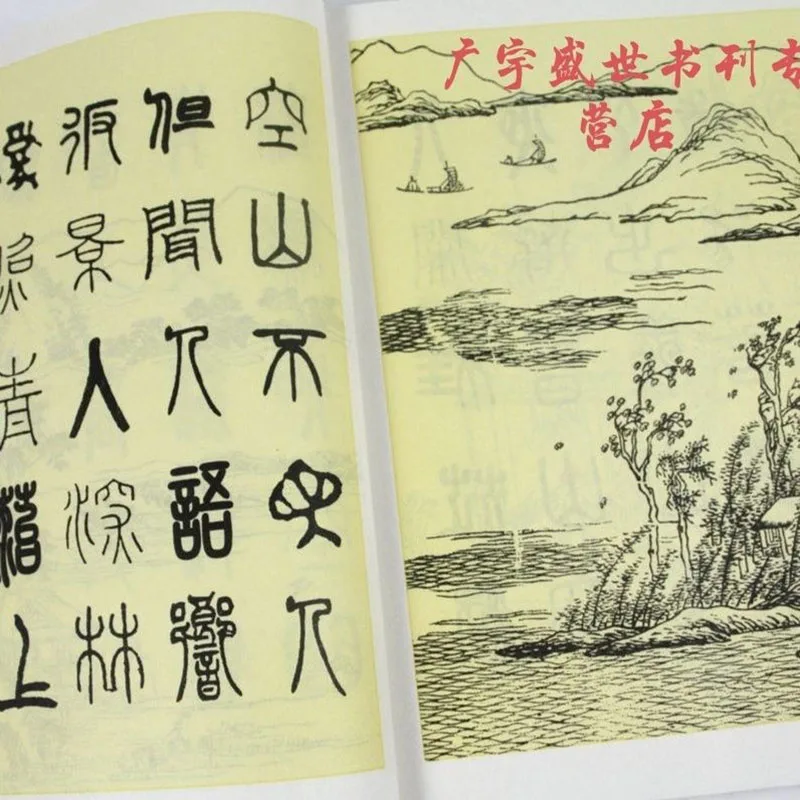 空山不見人
但聞人語響
返景入深林
復照青苔上
广宇盛世书刊专
营店